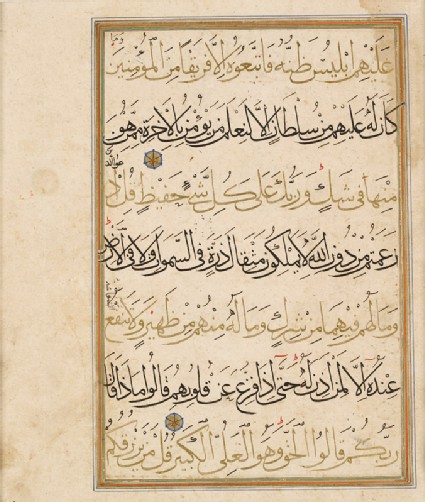 عَلَيْهِمْ اِبْلِيسُ ظَنَّهُ فَاتَّبَعُوهُ اِلَّا فَرِيقًا مِنَ الْمُؤْمِنِينَ وَمَا
كَانَ لَهُ عَلَيْهِمْ مِنْ سُلْطَانٍ اِلَّا لِنَعْلَمَ مَنْ يُؤْمِنُ بِالْاٰخِرَةِ مِمَّنْ هُوَ
مِنْهَا فِى شَكٍّ وَرَبُّكَ عَلٰى كُلِّ شَىْءٍ حَفِيظٌ قُلِ ادْعُوا الَّذِينَ
زَعَمْتُمْ مِنْ دُونِ اللّٰهِ لَا يَمْلِكُونَ مِثْقَالَ ذَرَّةٍ فِى السَّمٰوَاتِ وَلَا فِى الْاَرْضِ
وَمَا لَهُمْ فِيهِمَا مِنْ شِرْكٍ وَمَا لَهُ مِنْهُمْ مِنْ ظَهِيرٍ وَلَا تَنْفَعُ الشَّفَاعَةُ
عِنْدَهُ اِلَّا لِمَنْ اَذِنَ لَهُ حَتّٰى اِذَا فُزِّعَ عَنْ قُلُوبِهِمْ قَالُوا مَاذَا قَالَ
رَبُّكُمْ قَالُوا الْحَقَّ وَهُوَ الْعَلِىُّ الْكَبِيرُ قُلْ مَنْ يَرْزُقُكُمْ